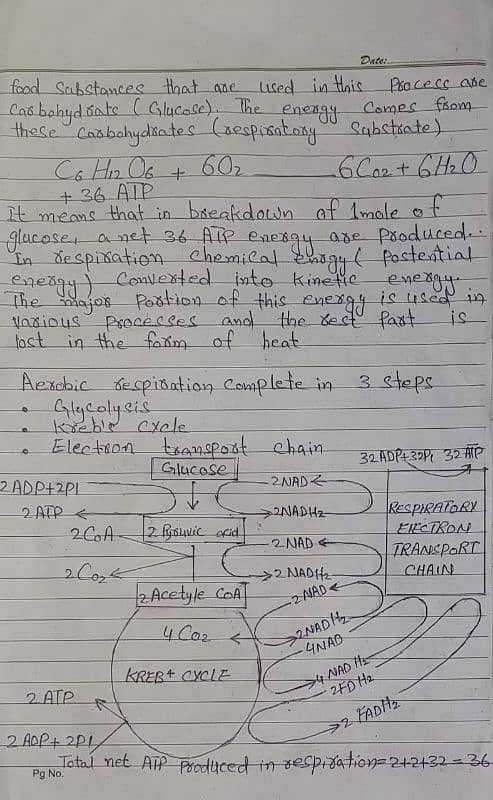 Date:
food Substances that are used in this Process are
Carbohydrate (Glucose). The energy Comes from
these Carbohydrates (respiratory Substrate)
C6 H12 O6 + 6O2 6CO2 + 6H2O
+ 36 ATP
It means that in breakdown of 1mole of
glucose, a net 36 ATP energy are Produced.
In respiration chemical energy (Postential
energy) Converted into kinetic energy.
The major Portion of this energy is used in
Various Processes and the rest Part is
lost in the form of heat
Aerobic respiration Complete in 3 steps
• Glycolysis
• Kreb's cycle
• Electron transport chain
32 ADP+32Pi 32 ATP
Glucose
2 ADP+2PI
2 NAD
2 ATP
2NADH2
RESPIRATORY
ELECTRON
TRANSPORT
CHAIN
2 CoA
2 Pyruvic acid
2 NAD
2 CO2
2 NADH2
2 Acetyle CoA
2 NAD
4 CO2
2NADH2
4NAD
KREB+ CYCLE
4 NAD H2
2FD H2
2 ATP
2 FADH2
2 ADP+ 2PI
Total net ATP Produced in respiration=2+2+32=36
Pg No.